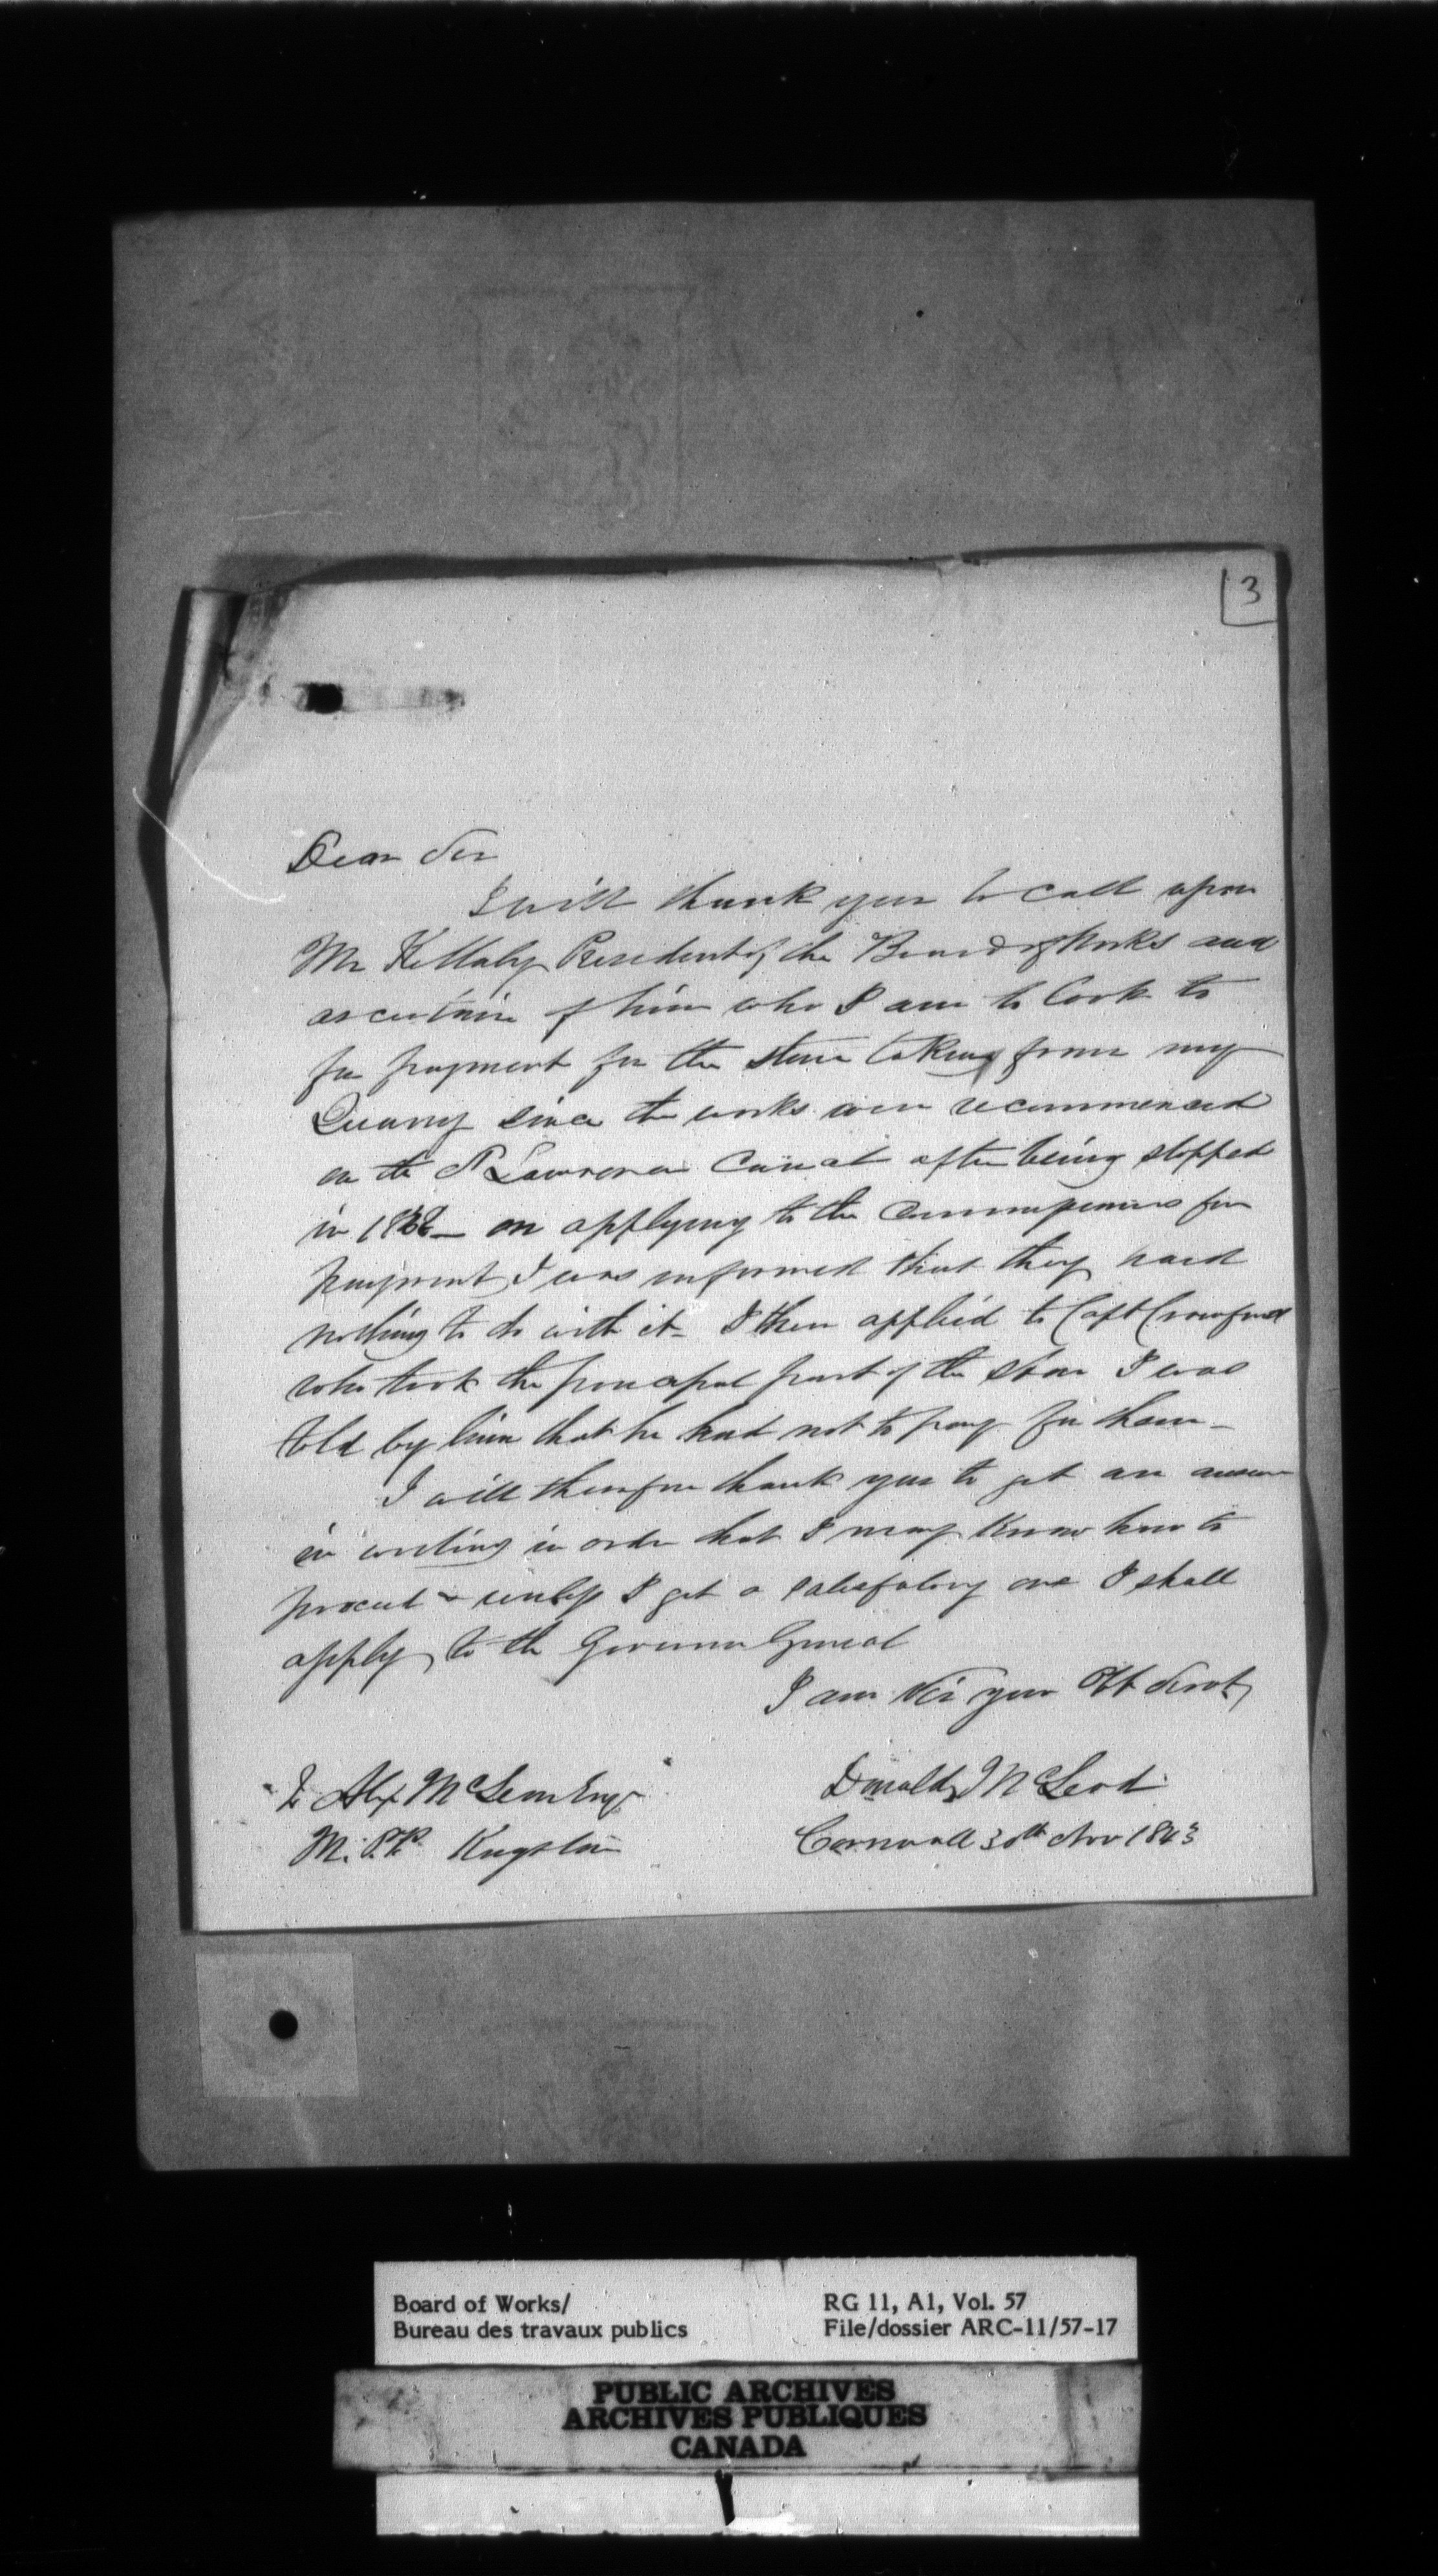 3
Dear Sir
I will thank you to call upon
Mr Killaly President of the Board of Works and
ascertain of him who I am to look to
for payment for the stone taken from my
Quarry since the works were recommenced
on the St Lawrence Canal after being stopped
in on applying to the Commissioners for
payment, I was informed that they had
nothing to do with it - I then applied to Capt Crawford
who took the principal part of the stone I was
told by him that he had not to pay for them -
I will therefore thank you to get an answer
in writing in order that I may know how to
proceed & unless I get a satisfactory one I shall
apply to the Governor General
I am Sir your Obt Servt
Donald McLeod
Cornwall 30th Nov 1843
To Alexr McLean Esqr
M.P.P. Kingston
Board of Works/
Bureau des travaux publics
RG 11, A1, Vol. 57
File/dossier ARC-11/57-17
PUBLIC ARCHIVES
ARCHIVES PUBLIQUES
CANADA